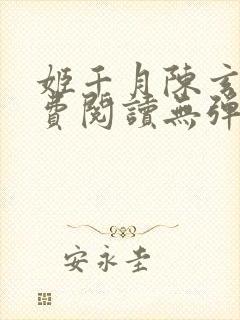 姬千月陳玄
費閱讀無彈
安永圭